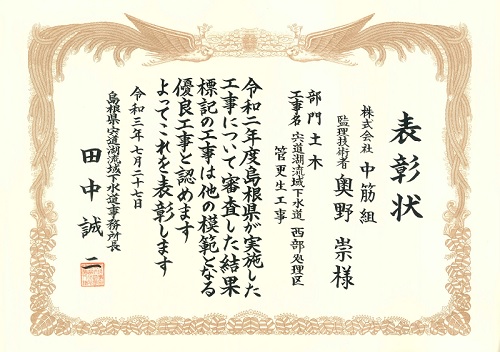 表彰状
株式会社 中筋組
監理技術者 奥野 崇様
部門 土木
工事名 宍道湖流域下水道 西部処理区
管更生工事
令和二年度島根県が実施した
工事について審査した結果
標記の工事は他の模範となる
優良工事と認めます
よってこれを表彰します
令和三年七月二十七日
島根県宍道湖流域下水道事務所長
田中誠二